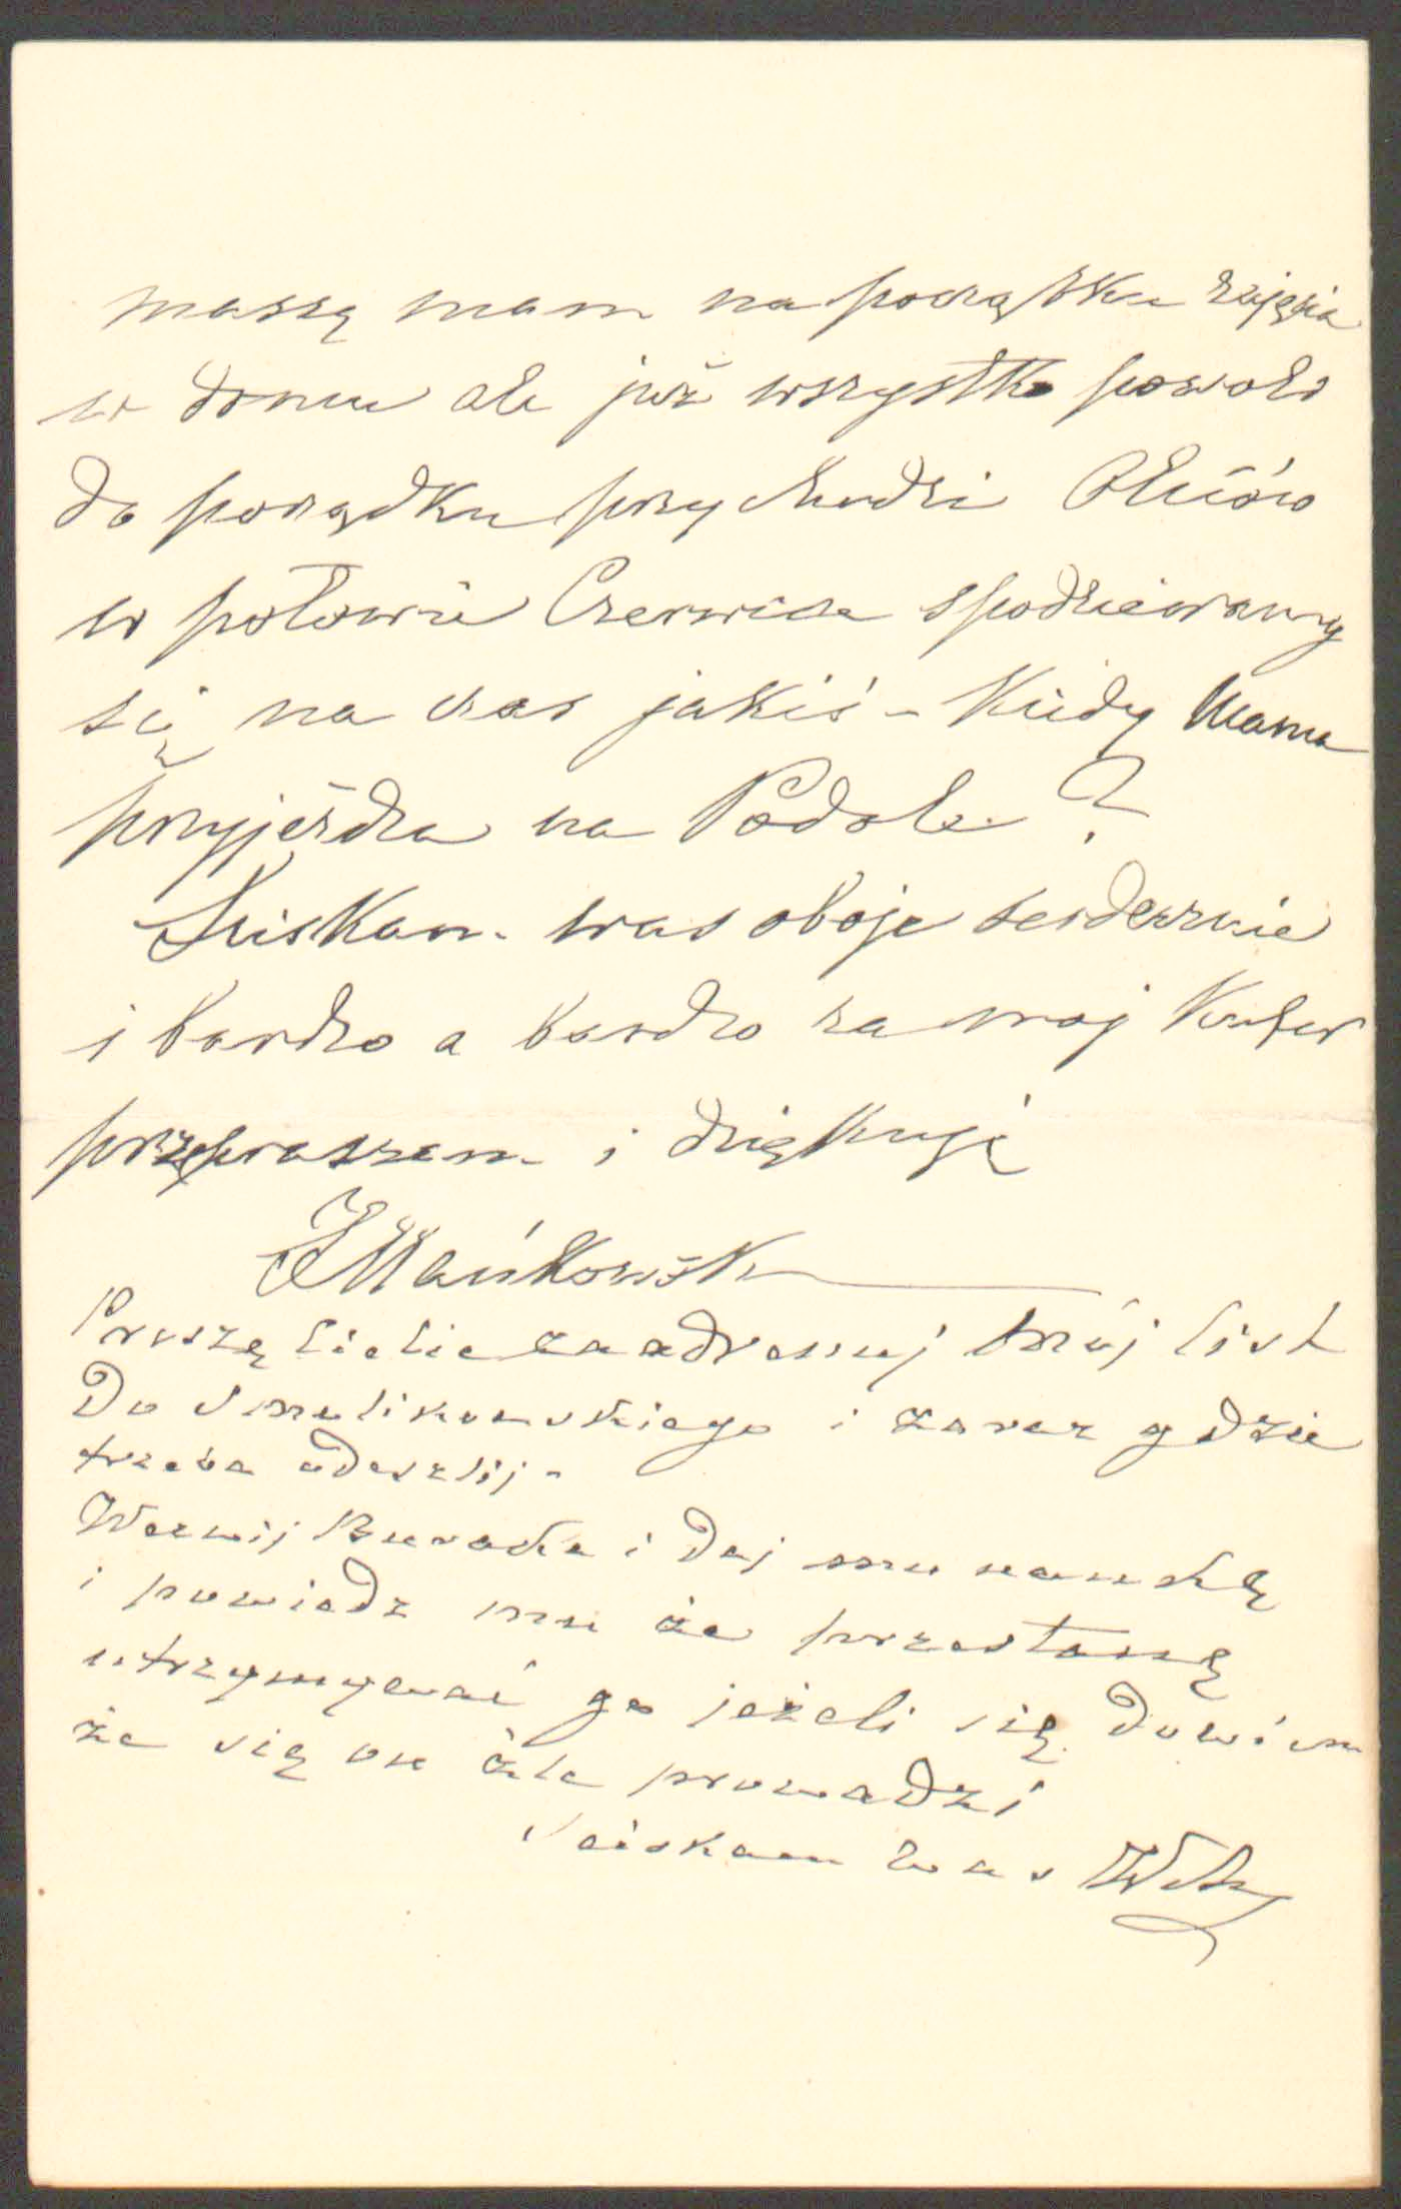 massę mam na początku zajęcia
w domu ale już wszystko powoli
do porządku przychodzi Olesiów
w połowie Czerwca spodziewamy
się na czas jakiś - Kiedy Mama
przyjeżdża na Podole?
Sciskam was oboje serdecznie
i bardzo a bardzo za moj Kufer
przepraszam i dziękuję
Mańkowska
Proszę Ciebie zaadresuj mój list
do Smulikowskiego i zaraz gdzie
trzeba odeszlij -
Wezwij Buraka i daj mu naukę
i powiedz mu że przestanę
utrzymywać go jeżeli się dowiem
że się on źle prowadzi
Sciskam Was